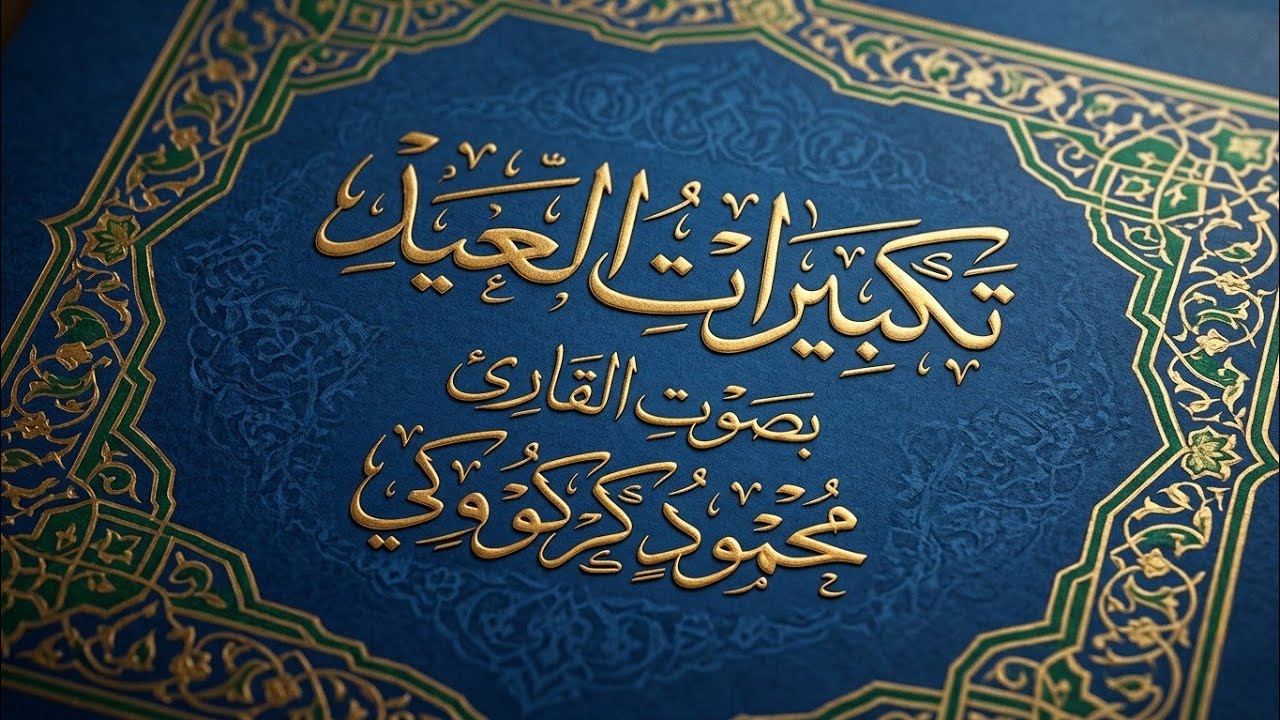 تَكْبِيرَاتُ الْعِيدِ
بِصَوْتِ القَارِئ
مَحْمُود كَركُووكِي